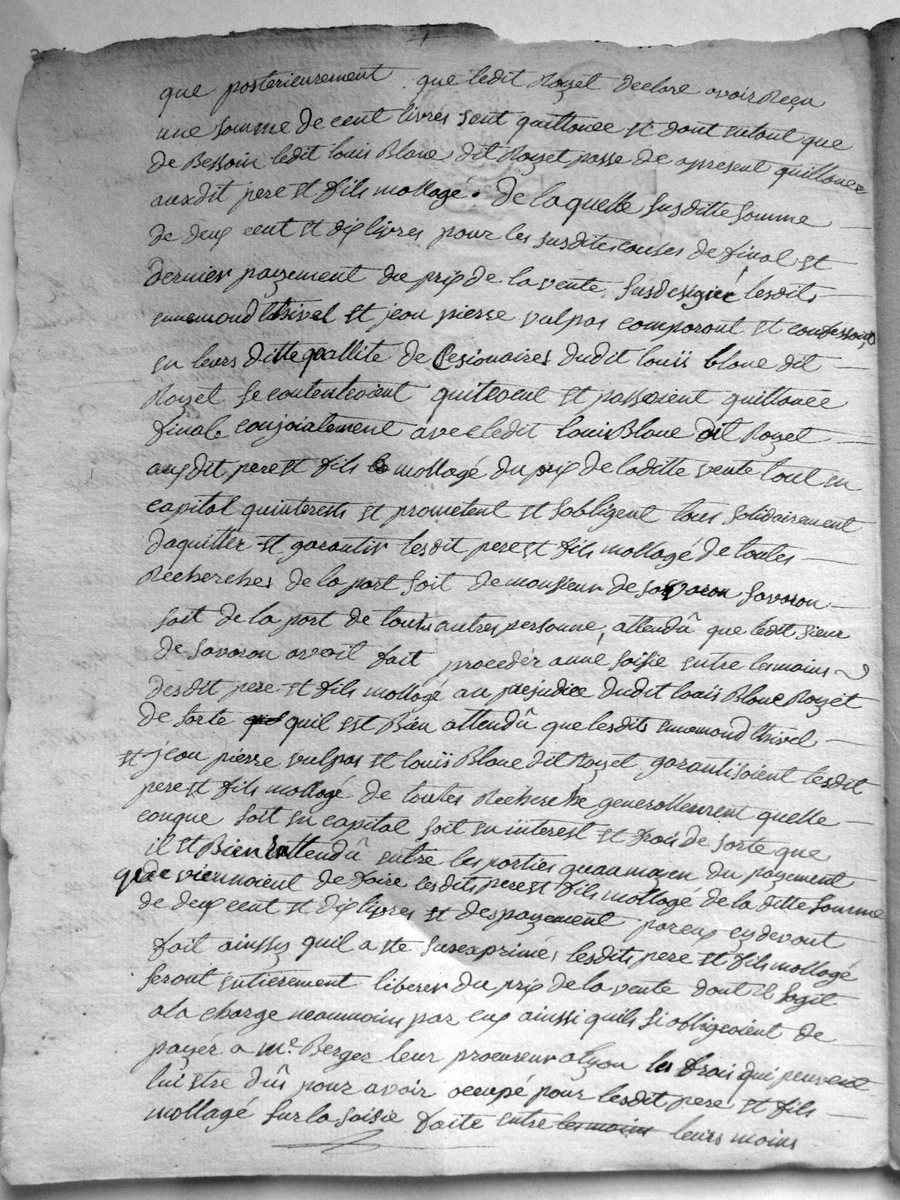 que posterieurement que ledit Rozet declare avoir Reçu
une somme de cent livres sent quittance et dont entant que
de Bessoin ledit louis Blanc dit Rozet passe de apresent quittance
auxdit pere et fils mollagé. De laquelle susditte somme
de deux cent et dix livres pour les susdites causes de final et
dernier payement du prix de la vente susdesigné lesdits
ennemond thivel et jean pierre vulpas comparant et confessant
en leurs ditte quallité de Cesionaires dudit louis blanc dit
Rozet se contenteoient quitteoent et passoient quittance
final conjoialement avec ledit louis Blanc dit Rozet
auxdit pere et fils mollagé du prix de laditte vente tout en
capital quinterests et prometent et sobligent tous solidairement
daquitter et garantir lesdit pere et fils mollagé de toutes
Recherches de la part soit de monsieur de savaron
soit de la part de toutes autres personne, attendû que ledit sieur
de savaron avoit fait proceder a une saisie entre lesmains
desdit pere et fils mollagé au prejudice dudit louïs Blanc Rozet
de sorte quil est Bien attendû que lesdits ennemond thivel
et jean pierre vulpas et louïs Blanc dit Rozet garantisoient lesdit
pere et fils mollagé de toutes Recherche generallement quelle
conque soit en capital soit en interest et frais de sorte que
il et Bien attendû entre les parties quau moyen du payement
que viennoient de faire lesdits pere et fils mollagé de la ditte somme
de deux cent et dix livres et des payement par eux cy devant
fait ainssy quil a ete susexprimés lesdits pere et fils mollagé
seront entierement liberer du prix de la vente dont il sagit
a la charge neanmoins par eux ainssi quils si obligeoient de
payer a me. Berger leur procureur a lyon les frais qui peuvent
lui etre dûs pour avoir ocupé pour lesdit pere et fils
mollagé sur la saisie faite entre les mains leurs mains